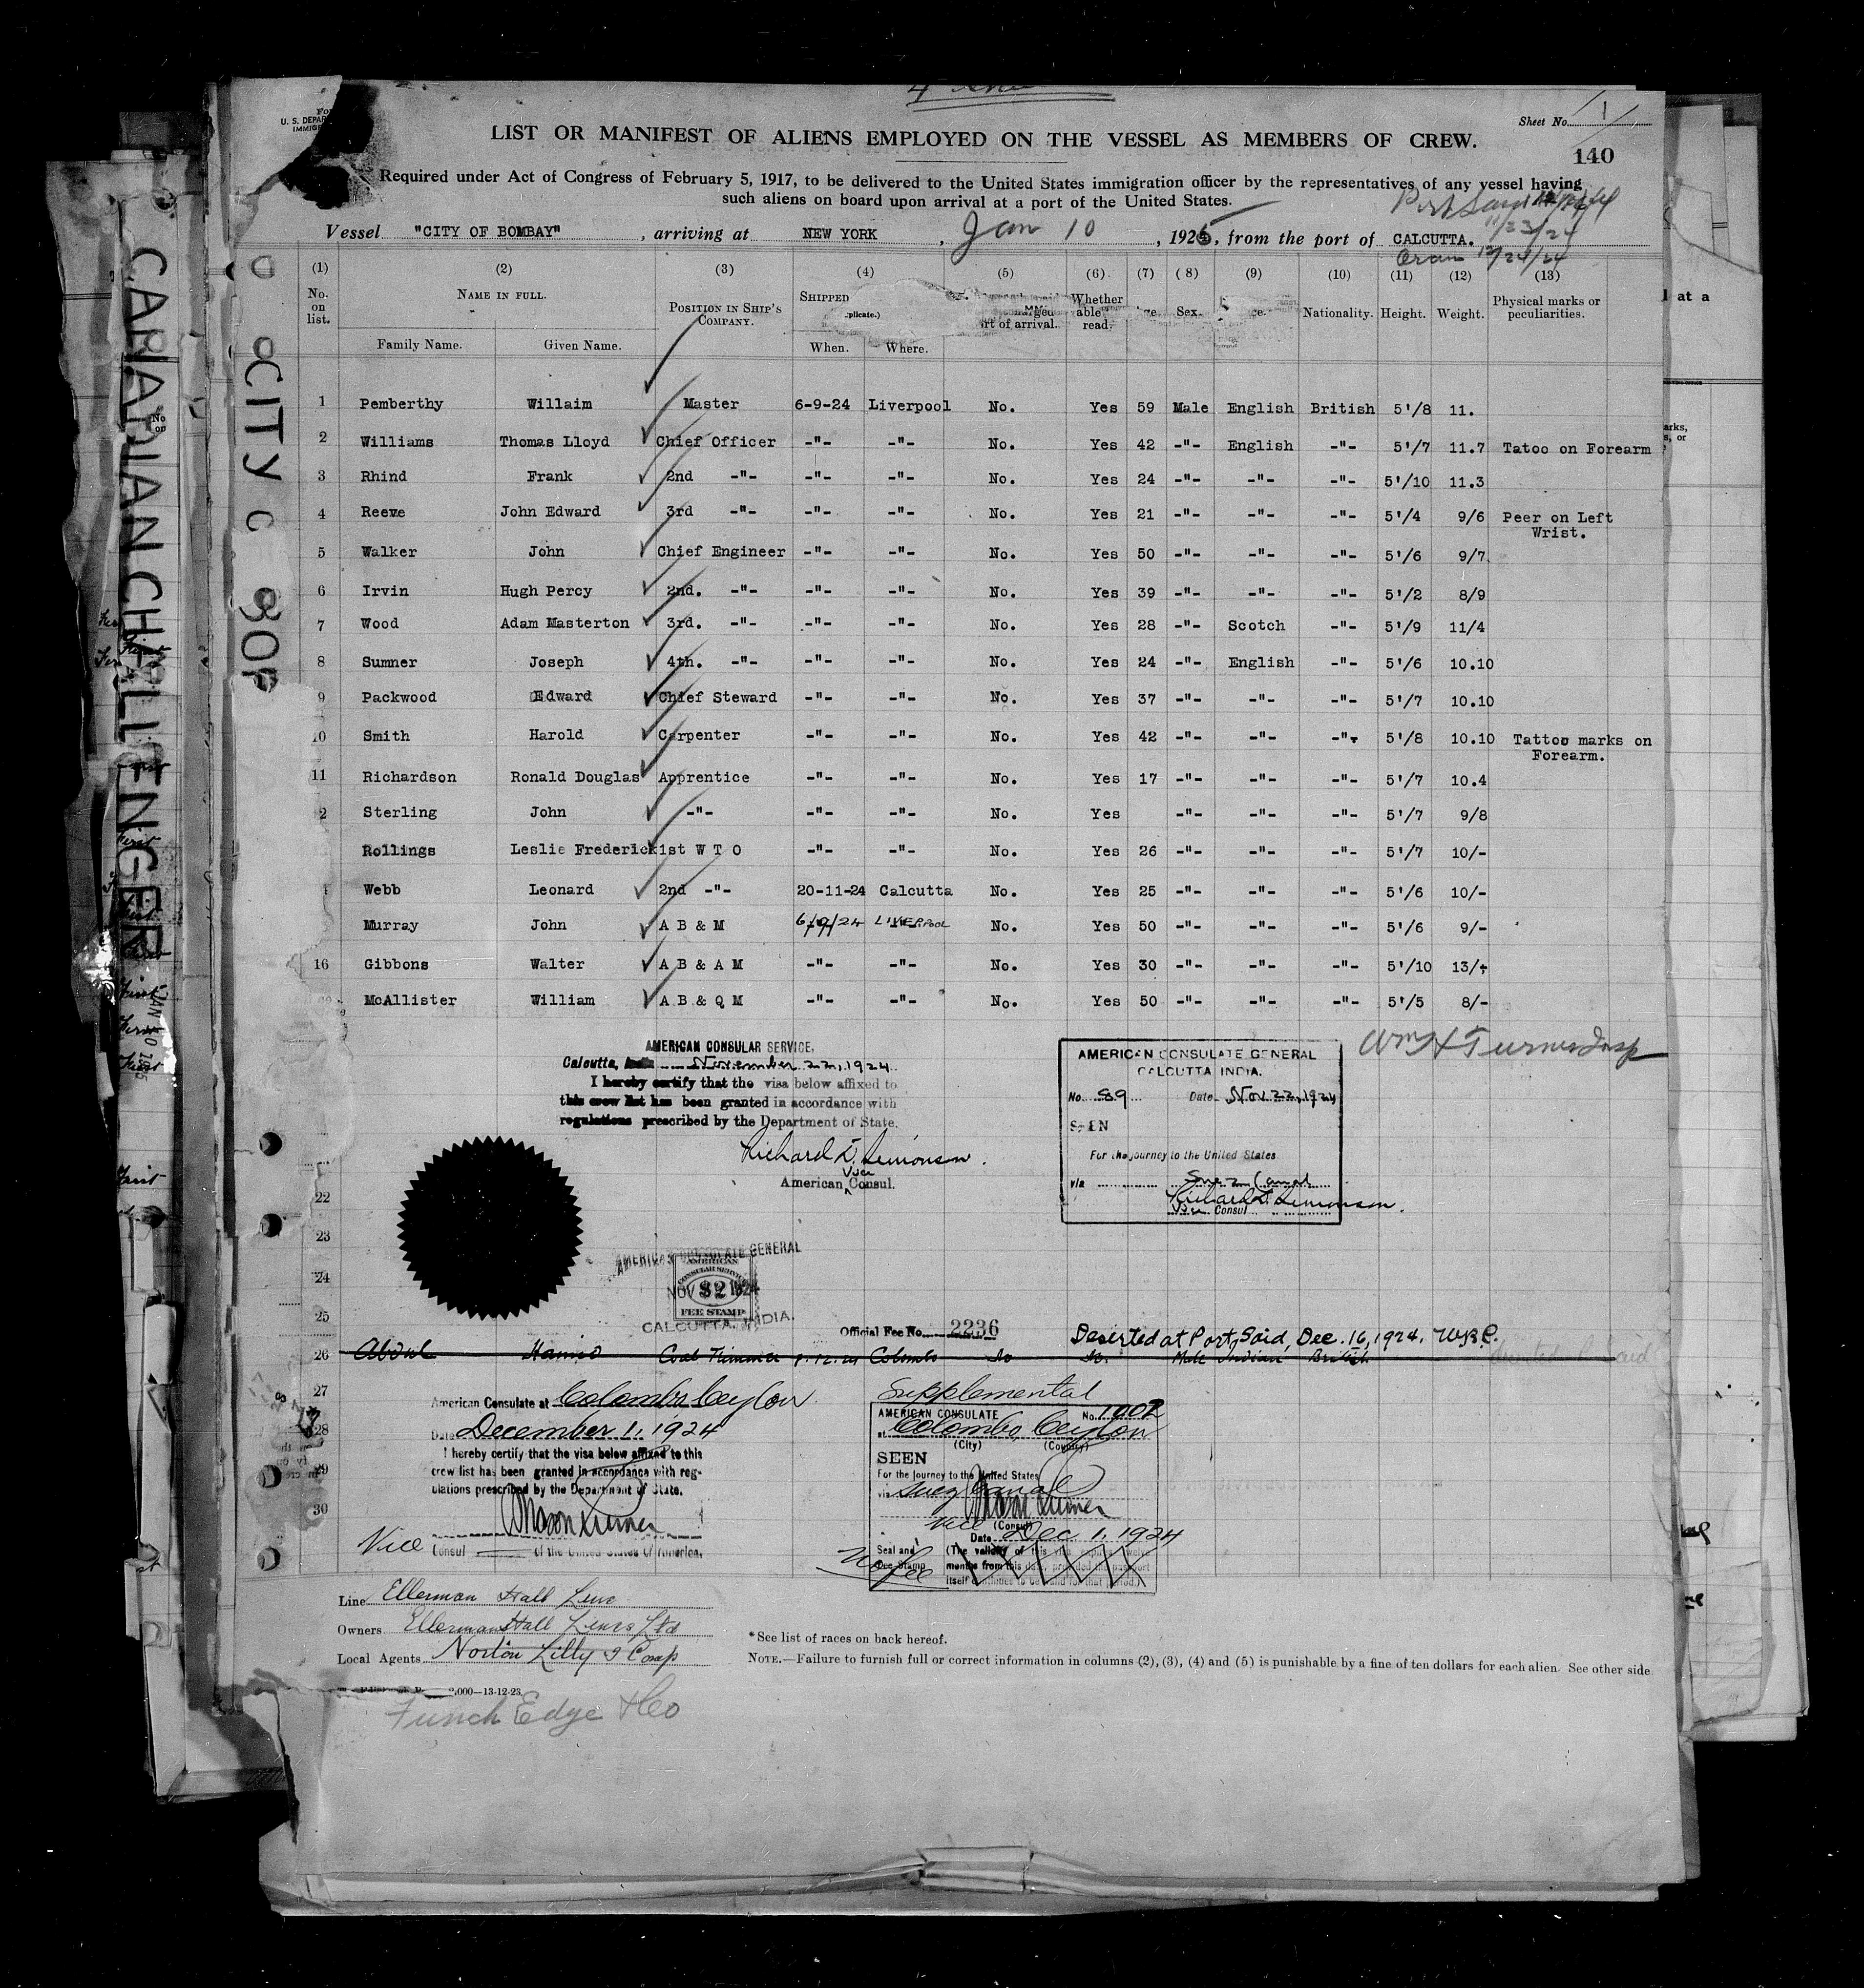 Sheet No. 1
LIST OR MANIFEST OF ALIENS EMPLOYED ON THE VESSEL AS MEMBERS OF CREW.
140
Required under Act of Congress of February 5, 1917, to be delivered to the United States immigration officer by the representatives of any vessel having
such aliens on board upon arrival at a port of the United States.
Port Said
11/23/24
Vessel "CITY OF BOMBAY", arriving at NEW YORK, Jan 10, 1925, from the port of CALCUTTA.
Oran 12/24/24
(1) (2) (3) (4) (5) (6) (7) (8) (9) (10) (11) (12) (13)
No. on list. NAME IN FULL. POSITION IN SHIP'S COMPANY. SHIPPED Whether able read. Sex. Nationality. Height. Weight. Physical marks or peculiarities.
Family Name. Given Name. When. Where.
1 Pemberthy Willaim Master 6-9-24 Liverpool No. Yes 59 Male English British 5'/8 11.
2 Williams Thomas Lloyd Chief Officer -"- -"- No. Yes 42 -"- English -"- 5'/7 11.7 Tatoo on Forearm
3 Rhind Frank 2nd -"- -"- -"- No. Yes 24 -"- -"- -"- 5'/10 11.3
4 Reeve John Edward 3rd -"- -"- -"- No. Yes 21 -"- -"- -"- 5'/4 9/6 Peer on Left
Wrist.
5 Walker John Chief Engineer -"- -"- No. Yes 50 -"- -"- -"- 5'/6 9/7
6 Irvin Hugh Percy 2nd. -"- -"- -"- No. Yes 39 -"- -"- -"- 5'/2 8/9
7 Wood Adam Masterton 3rd. -"- -"- -"- No. Yes 28 -"- Scotch -"- 5'/9 11/4
8 Sumner Joseph 4th. -"- -"- -"- No. Yes 24 -"- English -"- 5'/6 10.10
9 Packwood Edward Chief Steward -"- -"- No. Yes 37 -"- -"- -"- 5'/7 10.10
10 Smith Harold Carpenter -"- -"- No. Yes 42 -"- -"- -"- 5'/8 10.10 Tattoo marks on
Forearm.
11 Richardson Ronald Douglas Apprentice -"- -"- No. Yes 17 -"- -"- -"- 5'/7 10.4
2 Sterling John -"- -"- -"- No. Yes -"- -"- -"- 5'/7 9/8
Rollings Leslie Frederick 1st W T O -"- -"- No. Yes 26 -"- -"- -"- 5'/7 10/-
Webb Leonard 2nd -"- 20-11-24 Calcutta No. Yes 25 -"- -"- -"- 5'/6 10/-
Murray John A B & M 6/9/24 LIVERPOOL No. Yes 50 -"- -"- -"- 5'/6 9/-
16 Gibbons Walter A B & A M -"- -"- No. Yes 30 -"- -"- -"- 5'/10 13/-
McAllister William A B & Q M -"- -"- No. Yes 50 -"- -"- -"- 5'/5 8/-
Wm H Turner Insp
AMERICAN CONSULAR SERVICE.
Calcutta, India November 22, 1924
I hereby certify that the visa below affixed to
this crew list has been granted in accordance with
regulations prescribed by the Department of State.
Richard T. Simonson.
Vice
American Consul.
AMERICAN CONSULATE GENERAL
CALCUTTA INDIA.
No. 89 Date Nov. 22, 1924
SEEN
For the journey to the United States
via Suez Canal
Richard T. Simonson.
Vice Consul
22
23
24
25
AMERICAN CONSULATE GENERAL
AMERICAN
CONSULAR SERVICE
NOV 22 1924
$2
FEE STAMP
CALCUTTA, INDIA.
Official Fee No. 2236
Deserted at Port Said, Dec. 16, 1924. W.B.P.
26 Abdul Hamid Coal Trimmer 1.12.24 Colombo No No. Male Indian British
27
28
29
30
American Consulate at Colombo Ceylon
Date December 1, 1924
I hereby certify that the visa below affixed to this
crew list has been granted in accordance with reg-
ulations prescribed by the Department of State.
Vice Consul of the United States of America.
Supplemental
AMERICAN CONSULATE No. 1002
at Colombo, Ceylon
(City) (Country)
SEEN
For the journey to the United States
via Suez Canal
Vice (Consul)
Date Dec 1. 1924
Seal and
Fee Stamp
No fee
(The validity of this visa expires twelve
months from this date provided the passport
itself continues to be valid for that period.)
Line Ellerman Hall Line
Owners Ellerman Hall Lines Ltd
Local Agents Norton Lilly & Comp
*See list of races on back hereof.
NOTE.—Failure to furnish full or correct information in columns (2), (3), (4) and (5) is punishable by a fine of ten dollars for each alien. See other side
000—13-12-23.
Funch Edye & Co
CANADIAN CHALLENGER
JAN 10 1925
CITY O BOM